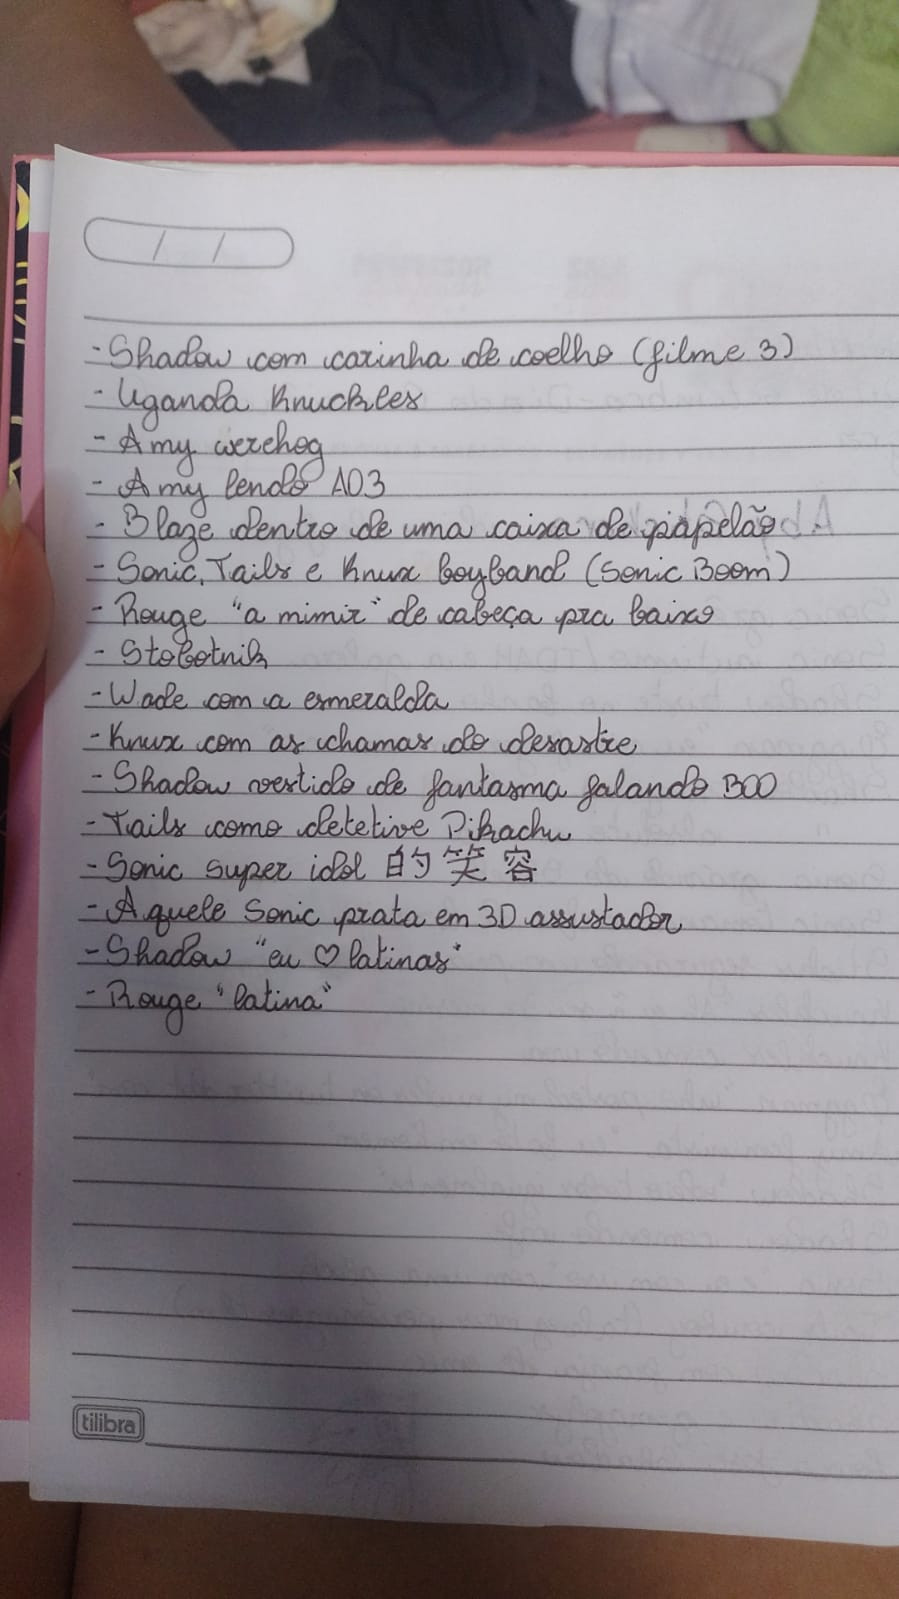 / /
- Shadow com carinha de coelho (filme 3)
- Uganda Knuckles
- Amy werehog
- Amy lendo AO3
- Blaze dentro de uma caixa de papelão
- Sonic, Tails e Knux boyband (Sonic Boom)
- Rouge "a mimir" de cabeça pra baixo
- Stobotnik
- Wade com a esmeralda
- Knux com as chamas do desastre
- Shadow vestido de fantasma falando BOO
- Tails como detetive Pikachu
- Sonic super idol 的笑容
- Aquele Sonic prata em 3D assustador
- Shadow "eu ♡ latinas"
- Rouge "latina"
tilibra